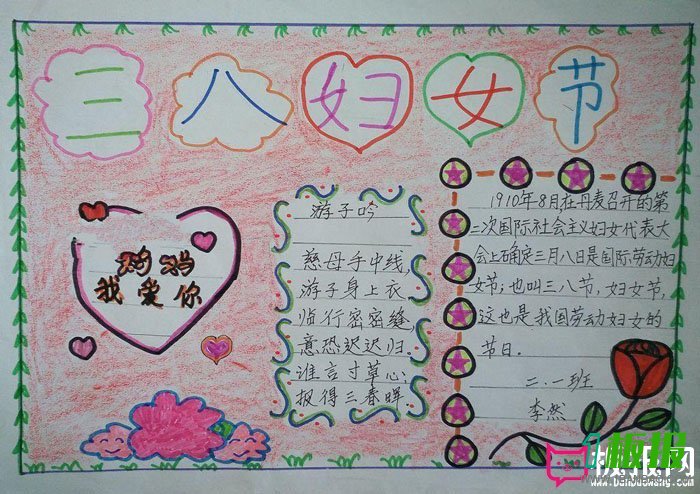 三八妇女节
妈妈
我爱你
游子吟
慈母手中线,
游子身上衣
临行密密缝
意恐迟迟归.
谁言寸草心;
报得三春晖.
1910年8月在丹麦召开的第
二次国际社会主义妇女代表大
会上确定三月八日是国际劳动妇
女节;也叫三八节,妇女节,
这也是我国劳动妇女的
节日.
二.一班
李然
板报网
www.banbaowang.com